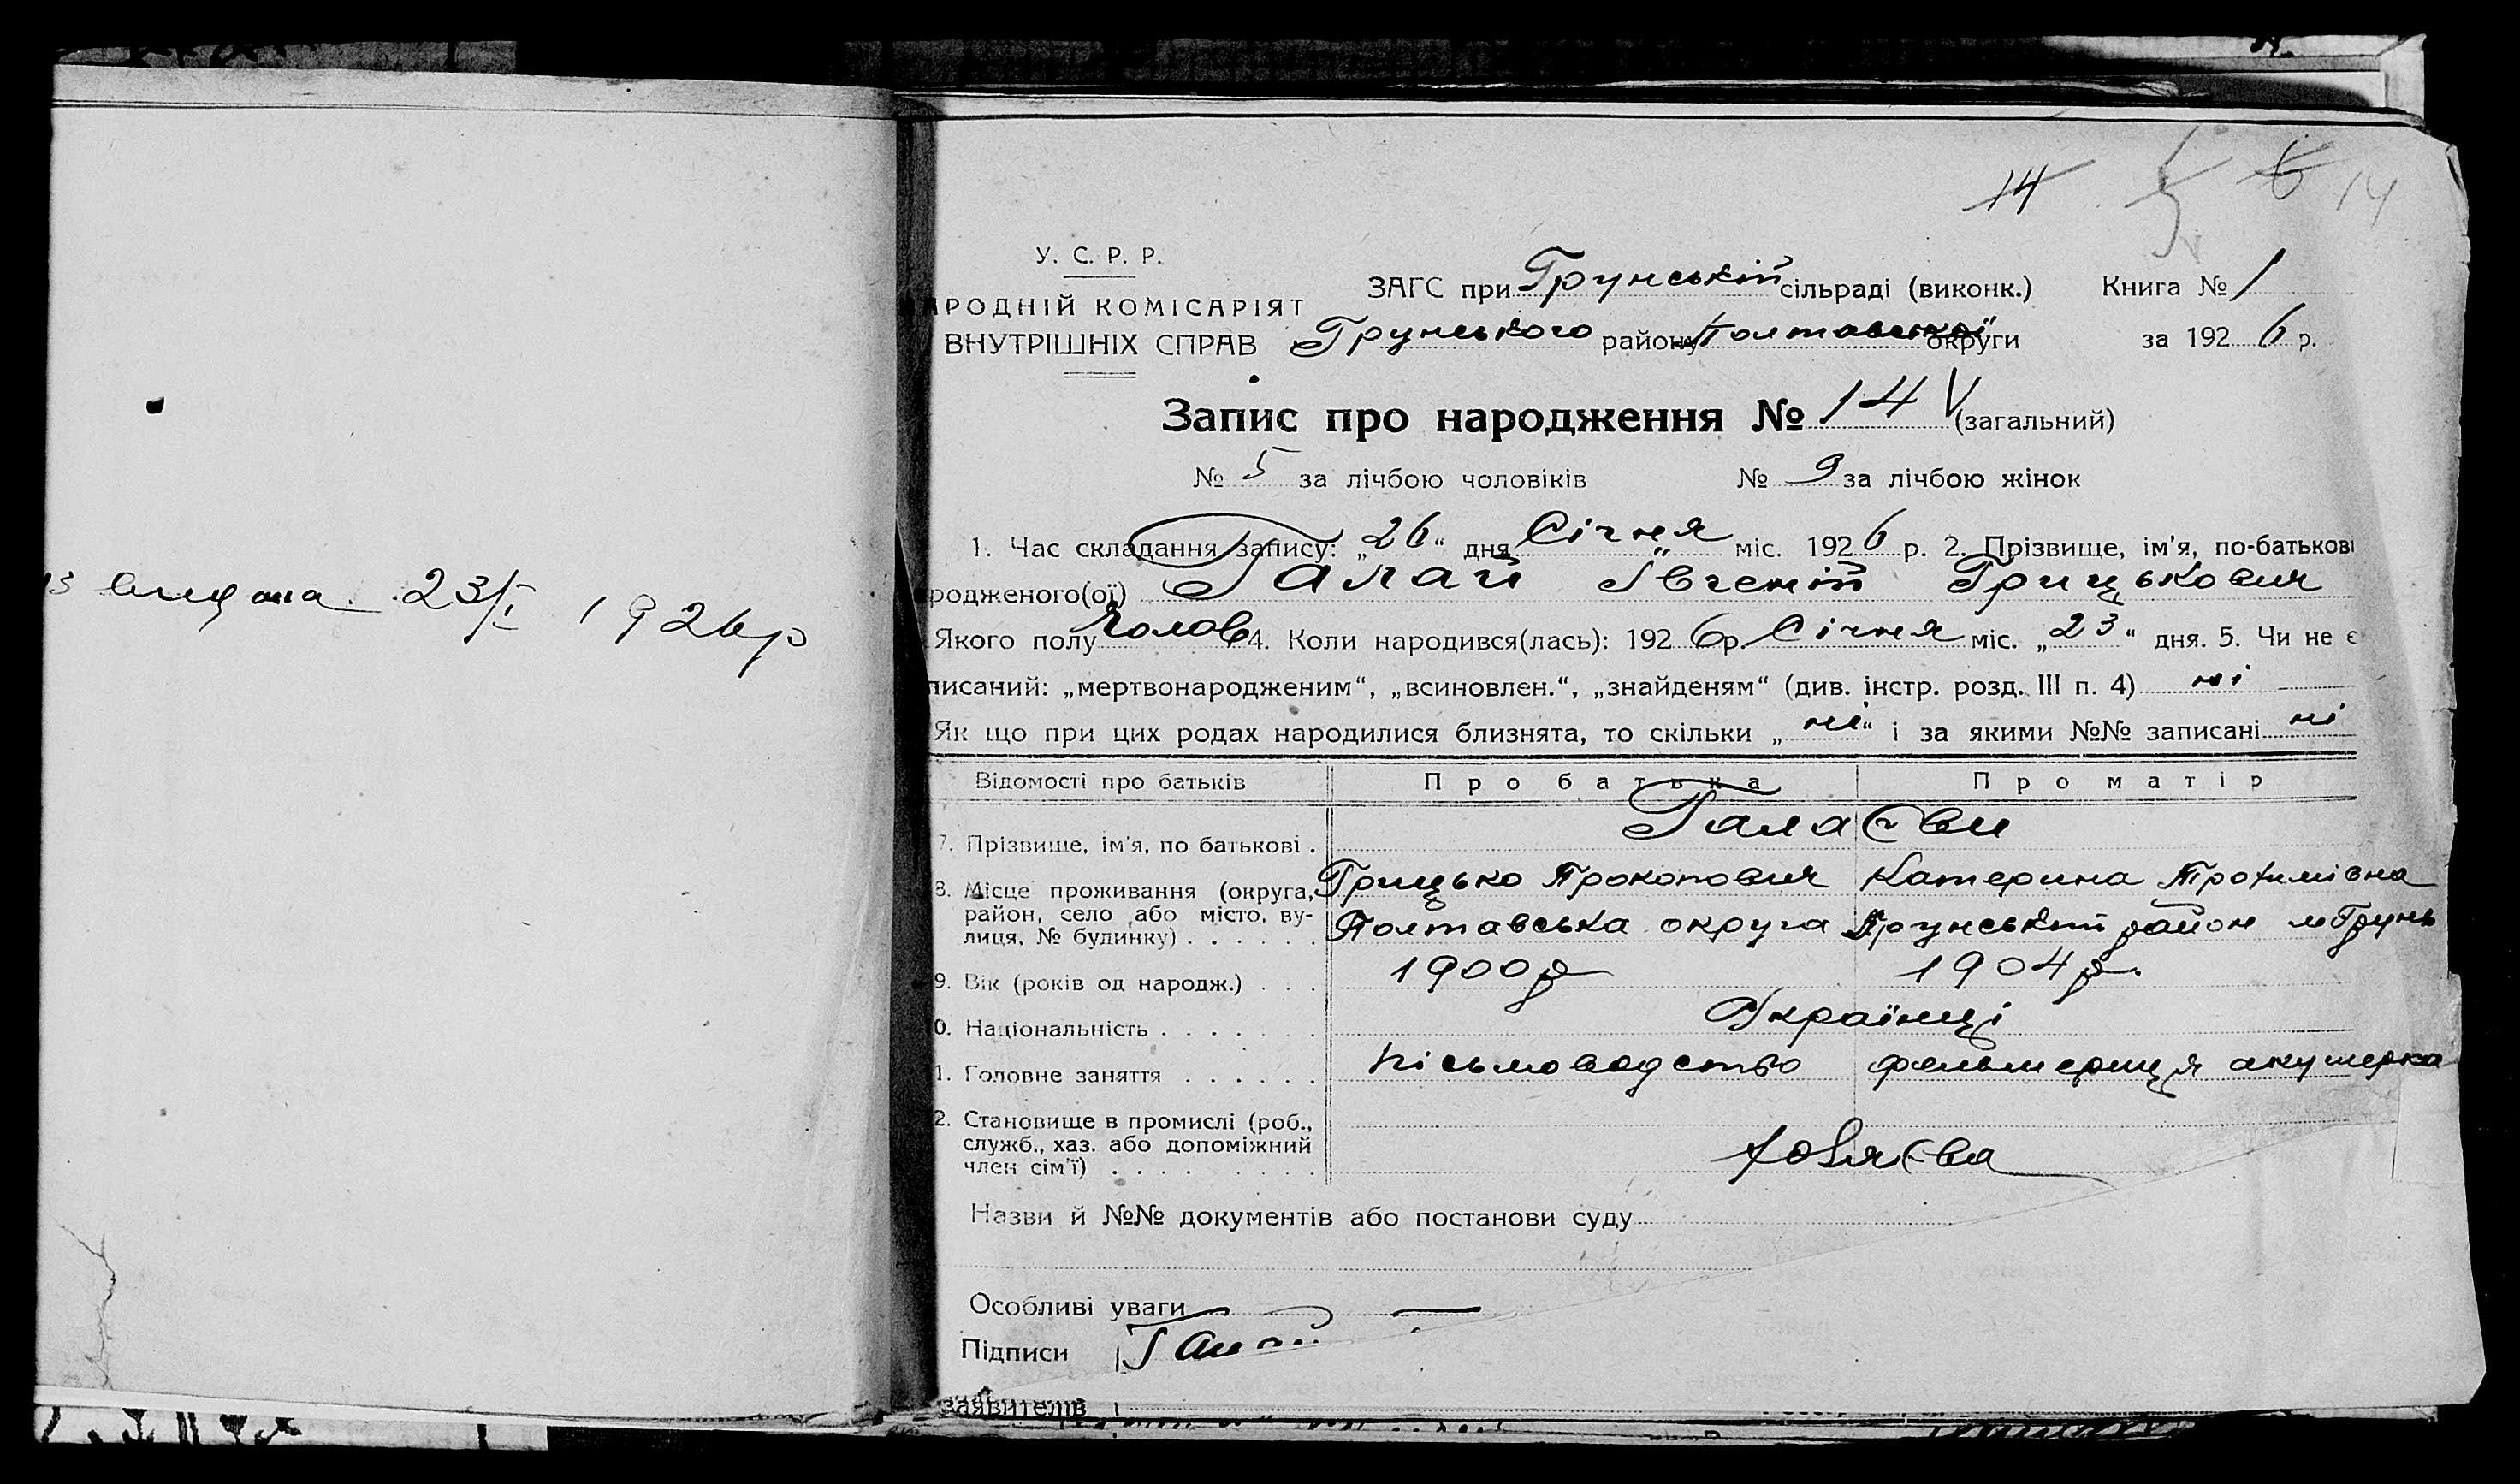 14 5 6 14
У. С. Р. Р.
АРОДНІЙ КОМІСАРІЯТ
ВНУТРІШНІХ СПРАВ
ЗАГС при Грунській сільраді (виконк.) Книга № 1
Грунського району Полтавської округи за 1926 р.
Запис про народження № 14 V (загальний)
№ 5 за лічбою чоловіків № 9 за лічбою жінок
1. Час складання запису: „26“ дня Січня міс. 1926 р. 2. Прізвище, ім'я, по-батькові
родженого(ої) Галай Івгеній Грицькович
Якого полу Чолов 4. Коли народився(лась): 1926 р. Січня міс. „23“ дня. 5. Чи не є
писаний: „мертвонародженим“, „всиновлен.“, „знайденям“ (див. інстр. розд. III п. 4) ні
Як що при цих родах народилися близнята, то скільки „ні“ і за якими №№ записані ні
Відомості про батьків Про батька Про матір
7. Прізвище, ім'я, по батькові . Галаєви
Грицько Прокопович Катерина Трохимівна
8. Місце проживання (округа, район, село або місто, вулиця, № будинку) . . . . . . Полтавська округа Грунський район м Грунь
9. Вік (років од народж.) . . . 1900 р 1904 р.
0. Національність . . . . . . Українці
1. Головне заняття . . . . . . пісьмоводство фельшериця акушерка
2. Становище в промислі (роб., служб., хаз. або допоміжний член сім'ї) . . . . . . .
Назви й №№ документів або постанови суду
Особливі уваги —
Підписи
заявителів
23/I 1926 р